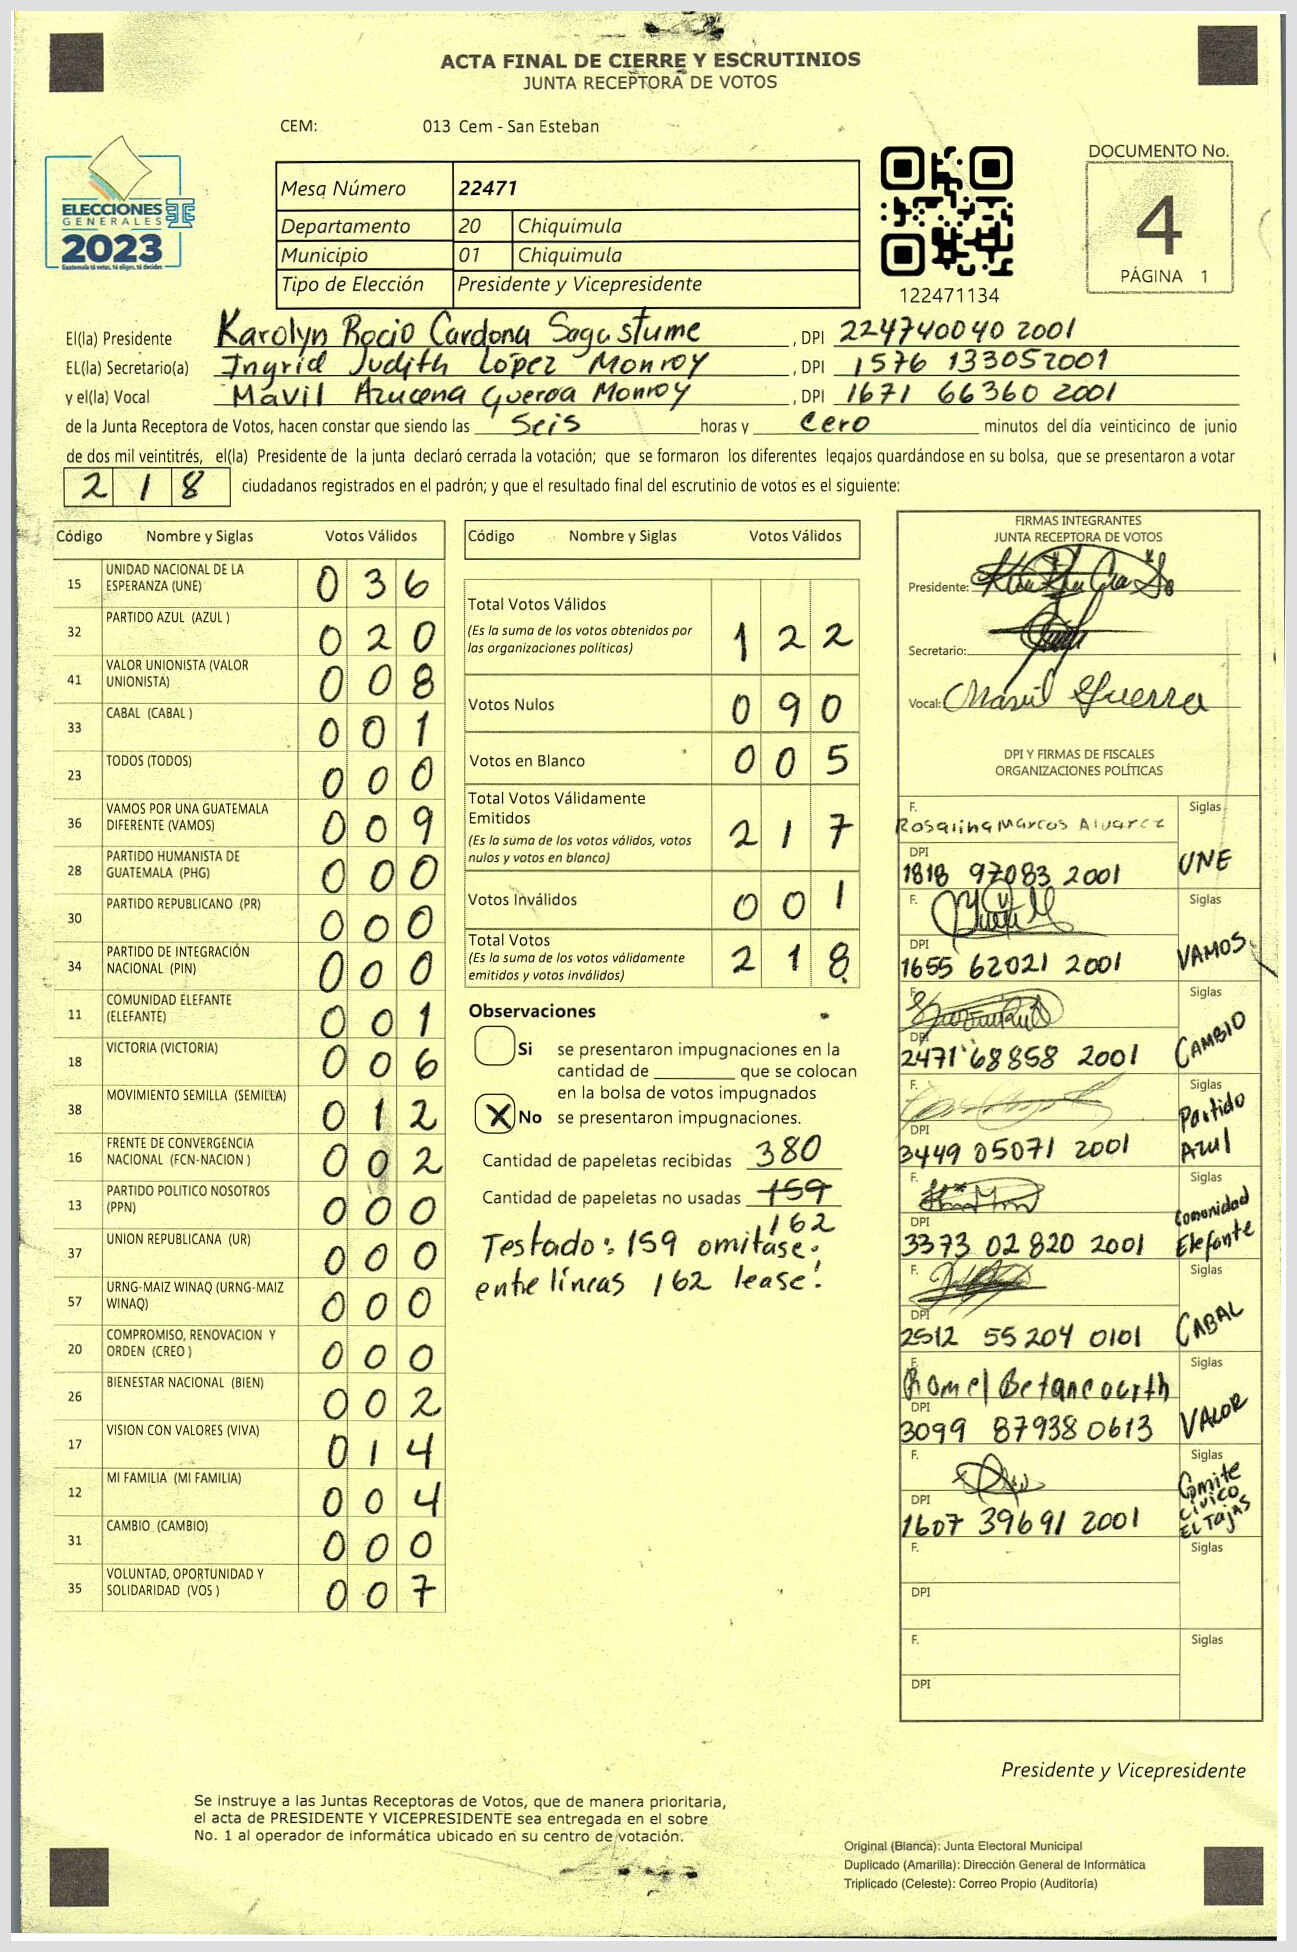 ACTA FINAL DE CIERRE Y ESCRUTINIOS
JUNTA RECEPTORA DE VOTOS
CEM: 013 Cem - San Esteban
ELECCIONES
GENERALES
2023
Guatemala tú votas, tú eliges, tú decides
Mesa Número 22471
Departamento 20 Chiquimula
Municipio 01 Chiquimula
Tipo de Elección Presidente y Vicepresidente
122471134
DOCUMENTO No.
4
PÁGINA 1
El(la) Presidente Karolyn Rocio Cardona Sagastume , DPI 224740040 2001
EL(la) Secretario(a) Ingrid Judith López Monroy , DPI 1576 133052001
y el(la) Vocal Mavil Azucena Gueroa Monroy , DPI 1671 66360 2001
de la Junta Receptora de Votos, hacen constar que siendo las Seis horas y Cero minutos del día veinticinco de junio
de dos mil veintitrés, el(la) Presidente de la junta declaró cerrada la votación; que se formaron los diferentes legajos quardándose en su bolsa, que se presentaron a votar
218 ciudadanos registrados en el padrón; y que el resultado final del escrutinio de votos es el siguiente:
Código Nombre y Siglas Votos Válidos
15 UNIDAD NACIONAL DE LA ESPERANZA (UNE) 036
32 PARTIDO AZUL (AZUL ) 020
41 VALOR UNIONISTA (VALOR UNIONISTA) 008
33 CABAL (CABAL ) 001
23 TODOS (TODOS) 000
36 VAMOS POR UNA GUATEMALA DIFERENTE (VAMOS) 009
28 PARTIDO HUMANISTA DE GUATEMALA (PHG) 000
30 PARTIDO REPUBLICANO (PR) 000
34 PARTIDO DE INTEGRACIÓN NACIONAL (PIN) 000
11 COMUNIDAD ELEFANTE (ELEFANTE) 001
18 VICTORIA (VICTORIA) 006
38 MOVIMIENTO SEMILLA (SEMILLA) 012
16 FRENTE DE CONVERGENCIA NACIONAL (FCN-NACION ) 002
13 PARTIDO POLITICO NOSOTROS (PPN) 000
37 UNION REPUBLICANA (UR) 000
57 URNG-MAIZ WINAQ (URNG-MAIZ WINAQ) 000
20 COMPROMISO, RENOVACION Y ORDEN (CREO ) 000
26 BIENESTAR NACIONAL (BIEN) 002
17 VISION CON VALORES (VIVA) 014
12 MI FAMILIA (MI FAMILIA) 004
31 CAMBIO (CAMBIO) 000
35 VOLUNTAD, OPORTUNIDAD Y SOLIDARIDAD (VOS ) 007
Código Nombre y Siglas Votos Válidos
Total Votos Válidos
(Es la suma de los votos obtenidos por
las organizaciones políticas) 122
Votos Nulos 090
Votos en Blanco 005
Total Votos Válidamente
Emitidos
(Es la suma de los votos válidos, votos
nulos y votos en blanco) 217
Votos Inválidos 001
Total Votos
(Es la suma de los votos válidamente
emitidos y votos inválidos) 218
Observaciones
Si se presentaron impugnaciones en la
cantidad de ________ que se colocan
en la bolsa de votos impugnados
X No se presentaron impugnaciones.
Cantidad de papeletas recibidas 380
Cantidad de papeletas no usadas 159
162
Testado: 159 omitase.
entre líneas 162 lease!
FIRMAS INTEGRANTES
JUNTA RECEPTORA DE VOTOS
Presidente:
Secretario:
Vocal: Mavil Guerra
DPI Y FIRMAS DE FISCALES
ORGANIZACIONES POLÍTICAS
F. Rosalina Marcos Alvarez Siglas
DPI 1818 97083 2001 UNE
F. Siglas
DPI 1655 62021 2001 VAMOS
F. Siglas
DPI 2471 68858 2001 CAMBIO
F. Siglas
DPI 3449 05071 2001 Partido Azul
F. Siglas
DPI 3373 02 820 2001 Comunidad Elefante
F. Siglas
DPI 2512 55204 0101 CABAL
F. Romel Betancourth Siglas
DPI 3099 87938 0613 VALOR
F. Siglas
DPI 1607 39691 2001 Comite Civico EL Tajas
F. Siglas
DPI
F. Siglas
DPI
Presidente y Vicepresidente
Se instruye a las Juntas Receptoras de Votos, que de manera prioritaria,
el acta de PRESIDENTE Y VICEPRESIDENTE sea entregada en el sobre
No. 1 al operador de informática ubicado en su centro de votación.
Original (Blanca): Junta Electoral Municipal
Duplicado (Amarilla): Dirección General de Informática
Triplicado (Celeste): Correo Propio (Auditoría)